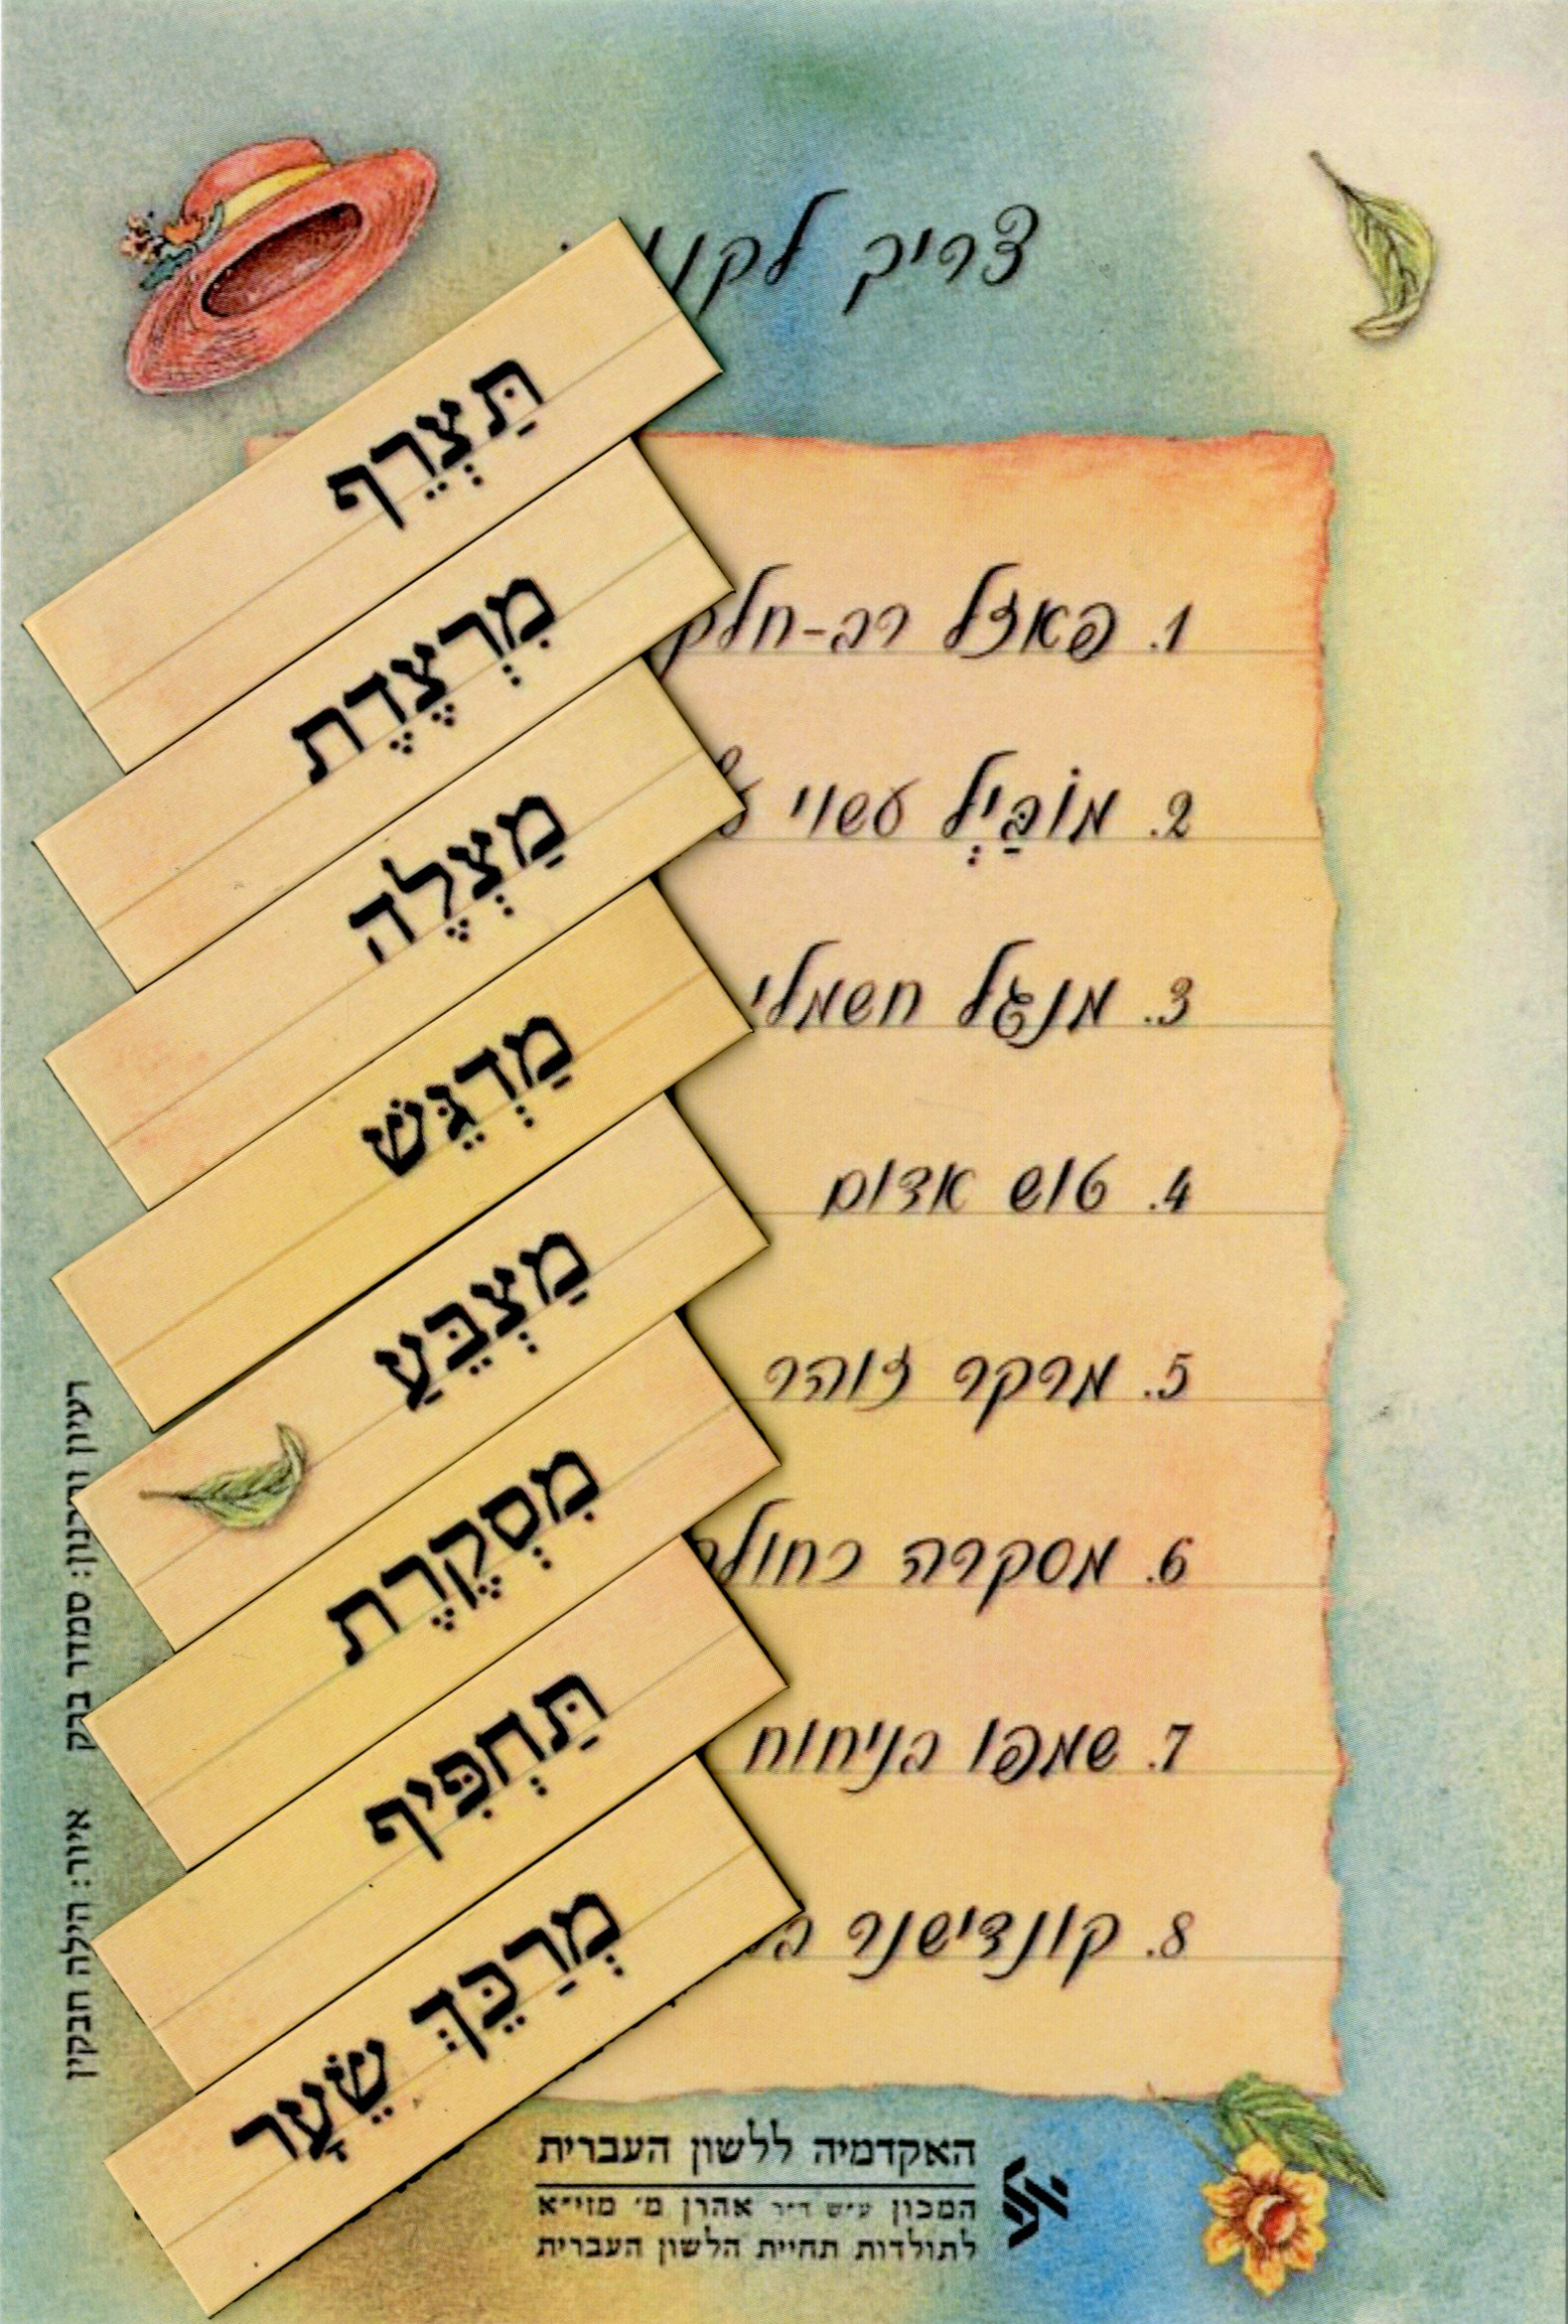 צריך
1. פאזל רב-חלק
2. מוֹבַּיְל עשוי
3. מנגל חשמלי
4. טוש אדום
5. מרקר זוהר
6. מסקרה
7. שמפו בניחוח
8. קונדישנר
תַּצְרֵף
מִרְצֶדֶת
מַצְלֶה
מַדְגֵּשׁ
מַצְבֵּעַ
מִסְקֶרֶת
תַּחְפִּיף
מְרַכֵּךְ שֵׂעָר
רעיון סמדר ברק
איור: הילה חבקין
האקדמיה ללשון העברית
המכון ע״ש ד״ר אהרן מ׳ מזי״א
לתולדות תחיית הלשון העברית